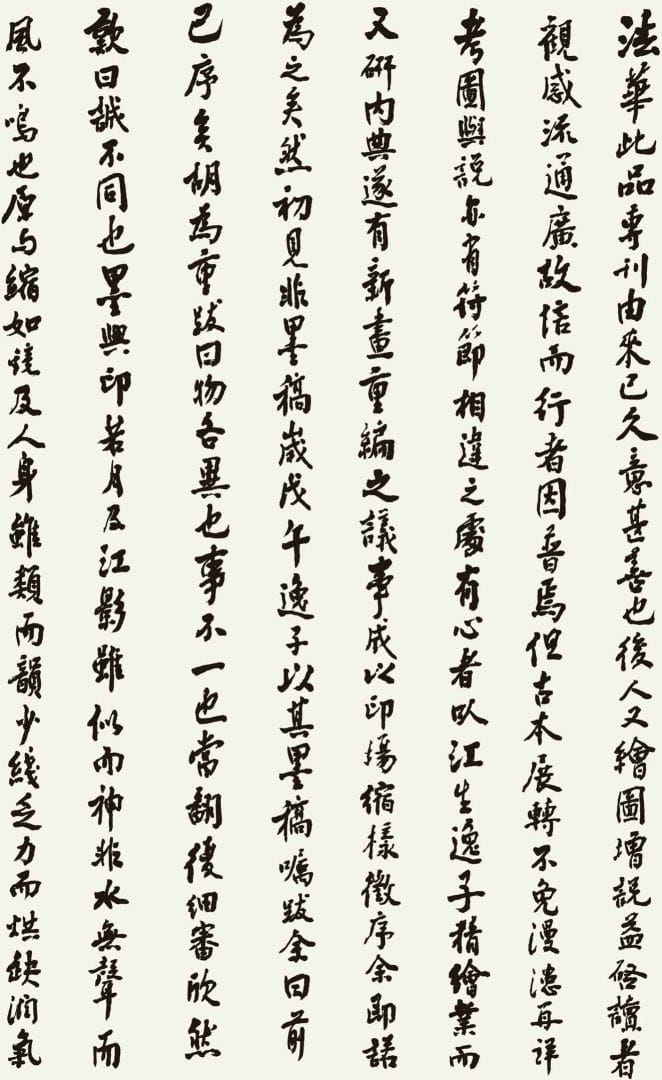 法華此品專刊由來已久意甚善也後人又繪圖增說益啓讀者
觀感流通廣故信而行者因普焉但古本展轉不免漫漶再詳
考圖與說亦有符節相違之處有心者以江生逸子精繪業而
又研內典遂有新畫重編之議事成以印場縮樣徵序余即諾
為之矣然初見非墨稿歲戊午逸子以其墨稿囑跋余曰前
已序矣胡為重跋曰物各異也事不一也當翻復細審欣然
歎曰誠不同也墨與印若月及江影雖似而神非水無聲而
風不鳴也原与縮如鏡及人身雖類而韻少綫乏力而烘缺潤氣